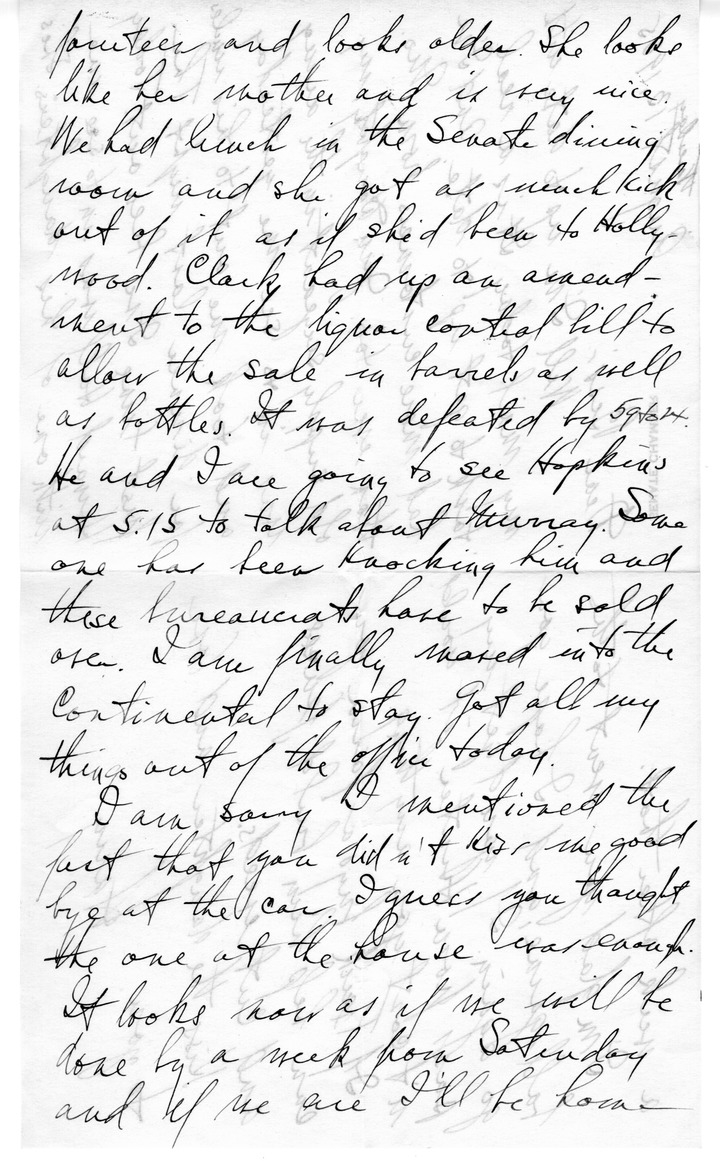 fourteen and looks older. She looks
like her mother and is very nice.
We had lunch in the Senate dining
room and she got as much kick
out of it as if she'd been to Holly-
wood. Clark had up an amend-
ment to the liquor control bill to
allow the sale in barrels as well
as bottles. It was defeated by 59 to 24.
He and I are going to see Hopkins
at 5:15 to talk about Murray. Some
one has been knocking him and
these bureaucrats have to be sold
over. I am finally moved into the
Continental to stay. Got all my
things out of the office today.
I am sorry I mentioned the
fact that you didn't kiss me good
bye at the car. I guess you thought
the one at the house was enough.
It looks now as if we will be
done by a week from Saturday
and if we are I'll be home